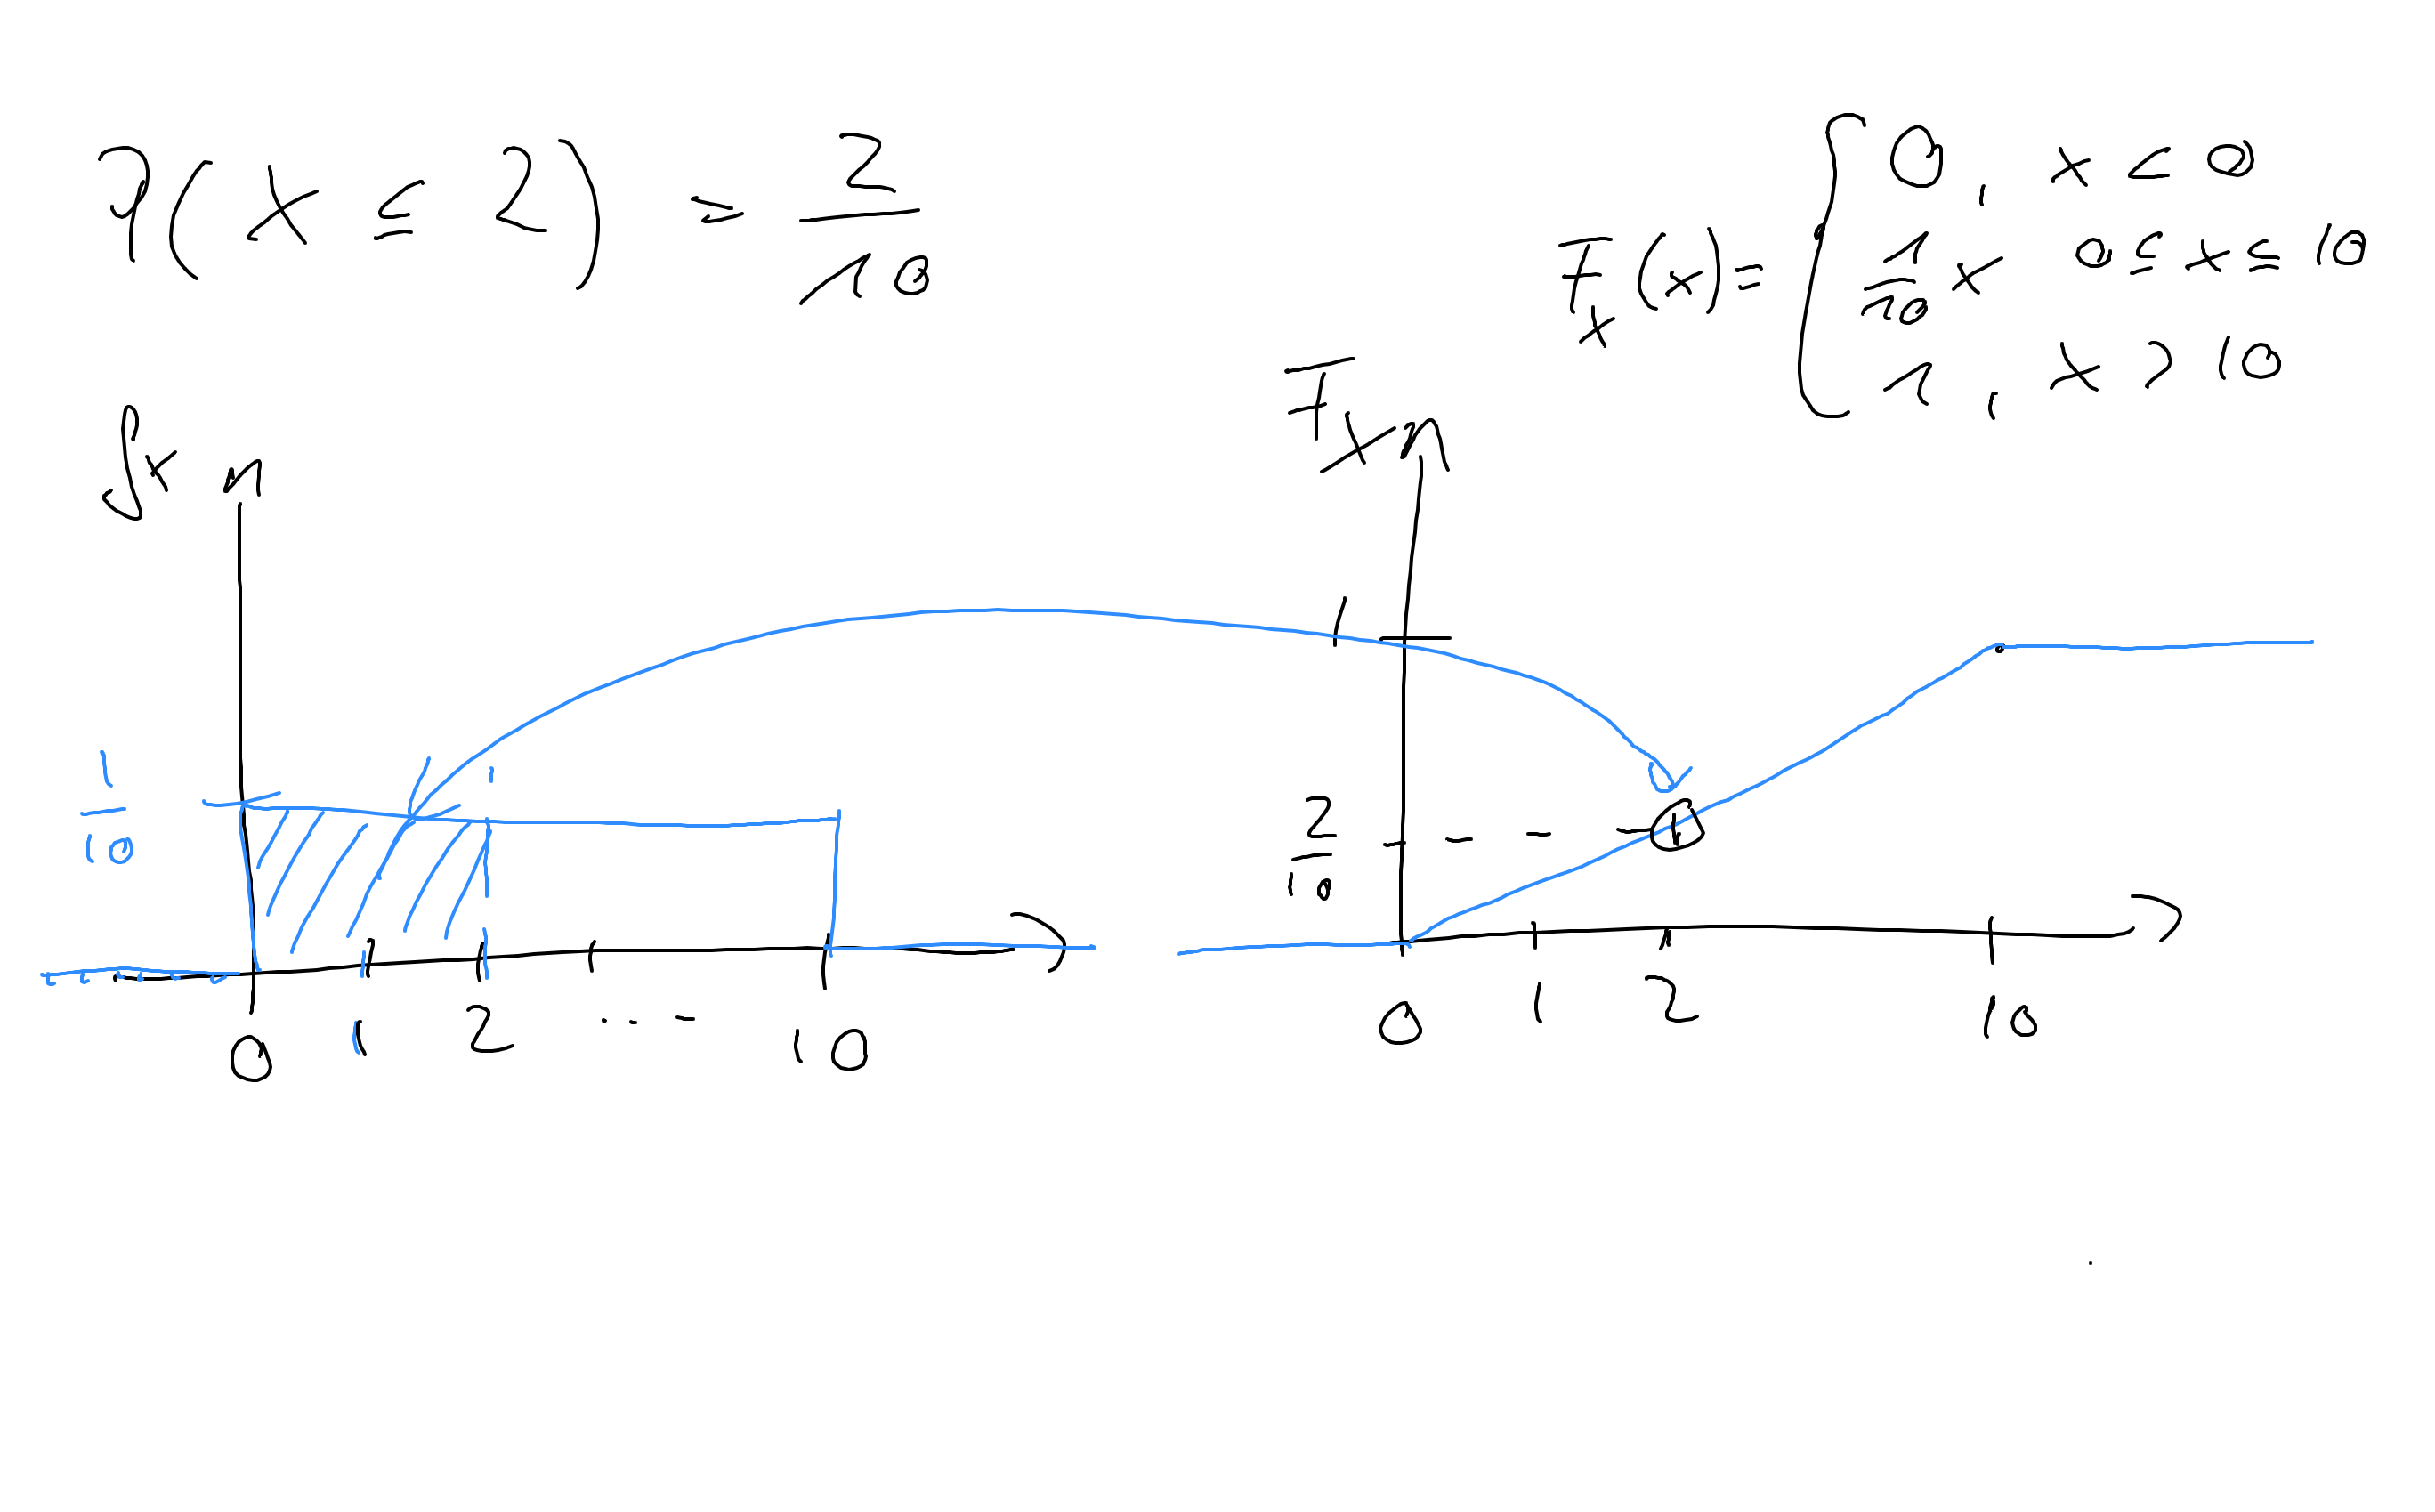 P(X ≤ 2) = 2/10
F_X(x) = { 0, x ≤ 0
1/10 x 0 ≤ x ≤ 10
1, x > 10
f_X
F_X
1
1/10
2/10
0 1 2 ... 10
0 1 2 10